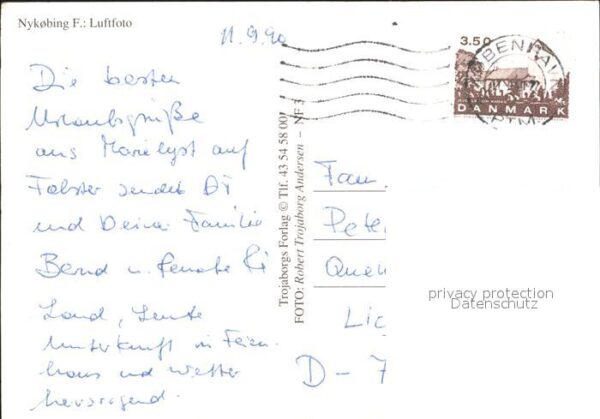 Nykøbing F.: Luftfoto
11.9.90
Die besten
Urlaubsgrüße
aus Marielyst auf
Falster sendet Dir
und Deiner Familie
Bernd u. Renate
Land, Leute
Unterkunft in Ferien-
haus und Wetter
hervorragend.
Trojaborgs Forlag © Tlf. 43 54 58 00
FOTO: Robert Trojaborg Andersen – NF 3
3.50
DANMARK
KØBENHAVN
Fam.
Peter
Quer
Lic
D – 7
privacy protection
Datenschutz